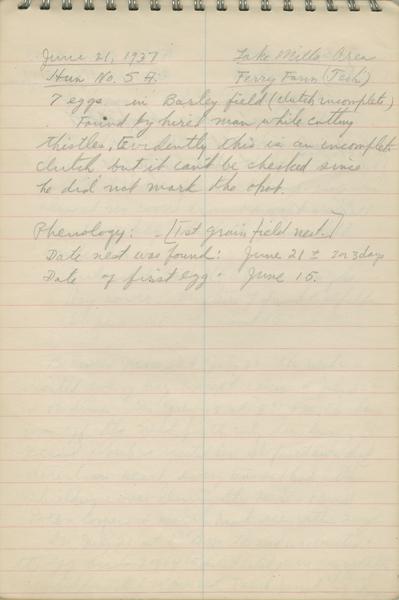 June 21, 1937 Lake Mills Area
Hun No. 5 A. Perry Farm
7 eggs in Barley field (clutch incomplete)
Found by hired man while cutting
thistles, Evidently this is an incomplete
clutch but it can't be checked since
he did not mark the spot.
Phenology: - [1st grain field nest.]
Date nest was found: June 21 ± 2 or 3 days
Date of first egg - June 15.